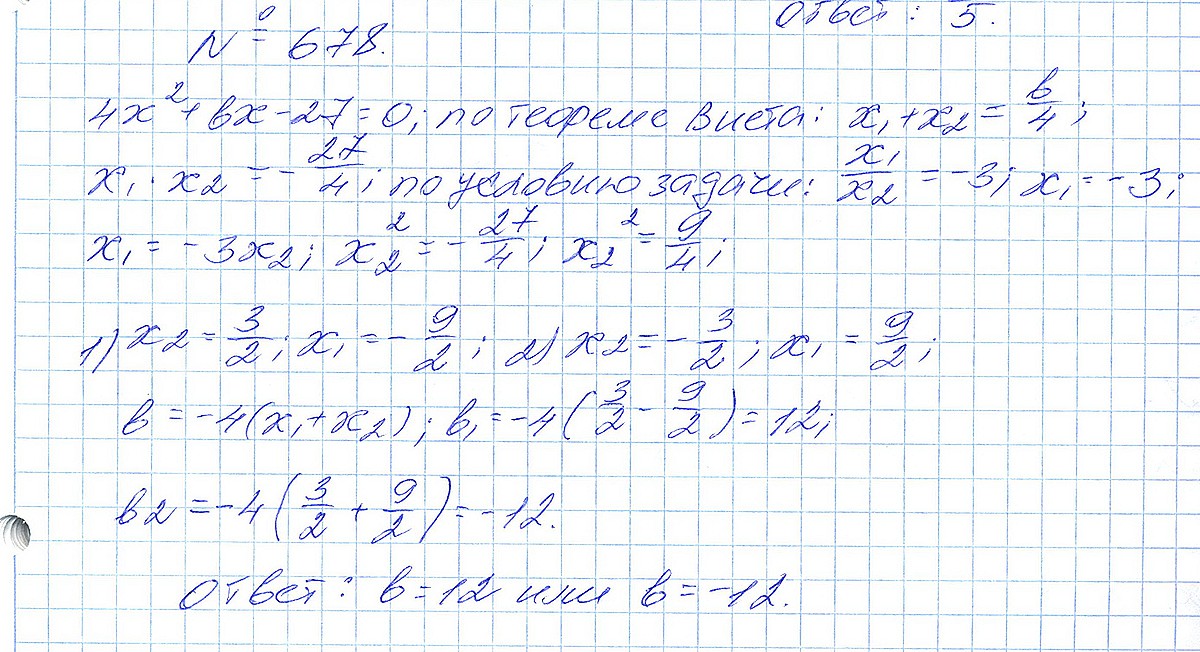 Ответ: 5.
№ 678.
4x² + bx - 27 = 0; по теореме Виета: x₁ + x₂ = b/4;
x₁ · x₂ = - 27/4; по условию задачи: x₁/x₂ = -3; x₁ = -3;
x₁ = -3x₂; x₂² = - 27/4; x₂² = 9/4;
1) x₂ = 3/2; x₁ = - 9/2; 2) x₂ = - 3/2; x₁ = 9/2;
b = -4(x₁ + x₂); b₁ = -4(3/2 - 9/2) = 12;
b2 = -4(3/2 + 9/2) = -12.
Ответ: b = 12 или b = -12.